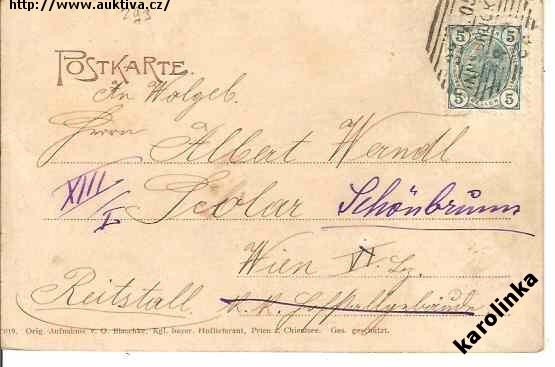 http://www.auktiva.cz/
293
POSTKARTE.
5 5
5 HELLER 5
An Wolgeb.
Herrn Albert Werndl
XIII/I
Scolar Schönbrunn
Wien VI. Bz.
Reitstall k. k. Hofstallgebäude
Orig. Aufnahme v. O. Blaschke, Kgl. bayer. Hoflieferant, Prien a. Chiemsee. Ges. geschützt.
karolinka